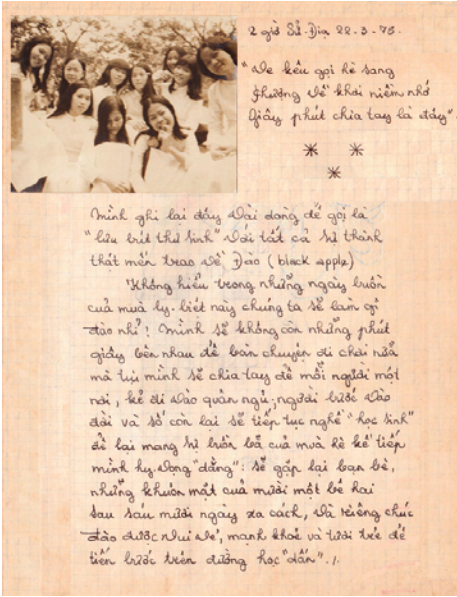 2 giờ Sử-Địa 22-3-75.
"Ve kêu gọi hè sang
Phượng về khơi niềm nhớ
Giây phút chia tay là đây".
Mình ghi lại đây vài dòng để gọi là
"lưu bút thư sinh" với tất cả sự thành
thật mến trao về Đào (black apple)
Không hiểu trong những ngày buồn
của mùa ly-biệt này chúng ta sẽ làm gì
Đào nhỉ! Mình sẽ không còn những phút
giây bên nhau để bàn chuyện đi chơi nữa
mà tụi mình sẽ chia tay để mỗi người một
nơi, kẻ đi vào quân ngũ; người bước vào
đời và số còn lại sẽ tiếp tục nghề "học sinh"
để lại mang sự buồn bã của mùa hè kế tiếp
mình hy-vọng "dằng": sẽ gặp lại bạn bè,
những khuôn mặt của mười một bê hai
sau sáu mươi ngày xa cách, và riêng chúc
Đào được vui vẻ, mạnh khoẻ và tươi trẻ để
tiến bước trên đường học "dấn"./.